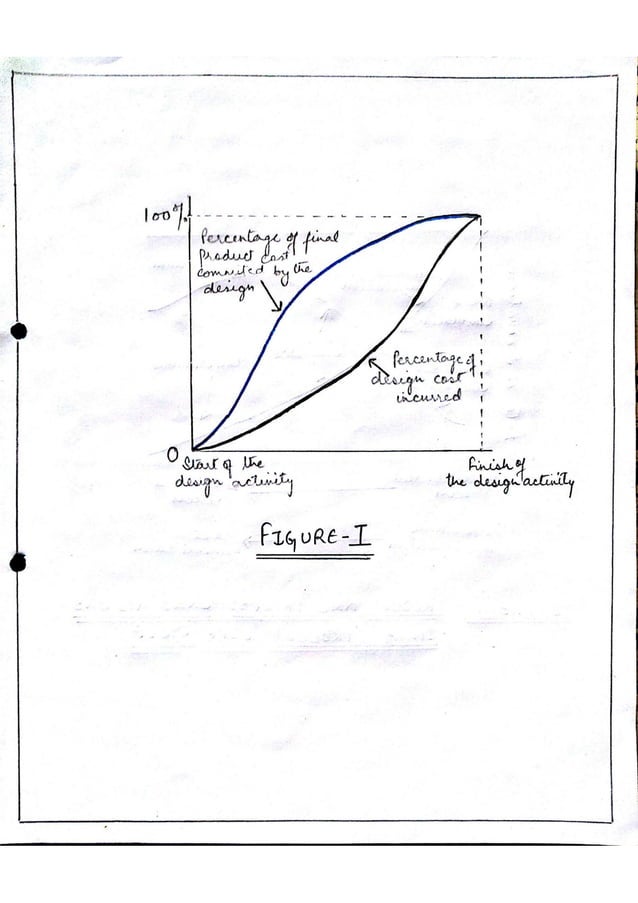 100%
Percentage of final
Product cost
commuted by the
design
Percentage of
design cost
incurred
0
Start of the
design activity
Finish of
the design activity
FIGURE-I